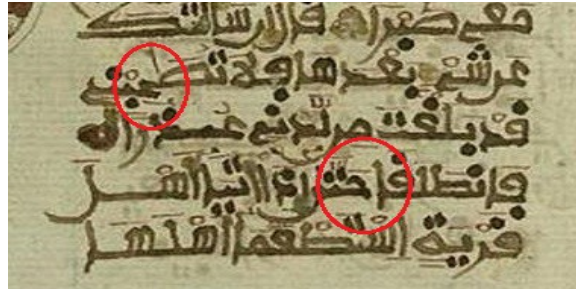 معي صبرا قال إن سألتك
عن شيء بعدها فلا تصحبني
قد بلغت من لدني عذرا
فانطلقا حتى إذا أتيا أهل
قرية استطعما أهلها